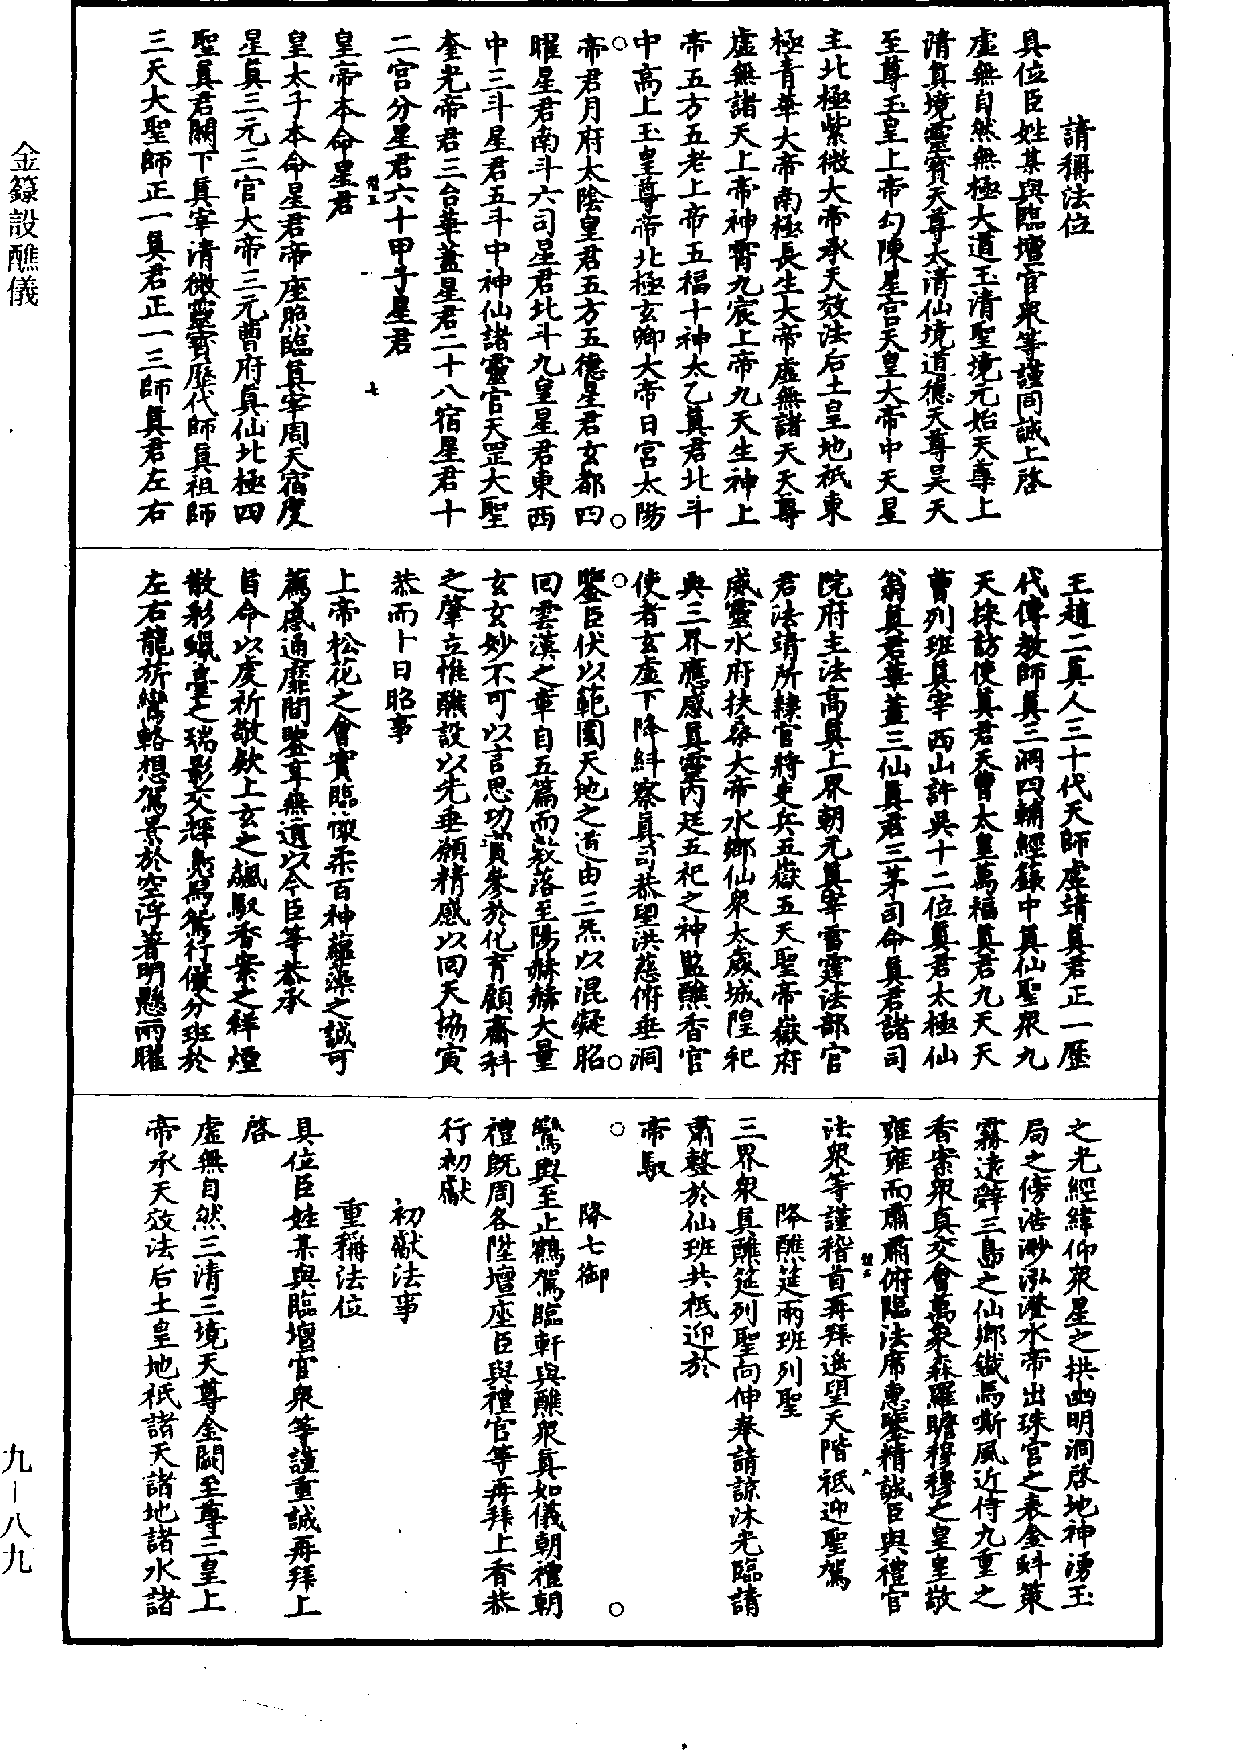 請稱法位
具位臣姓某與臨壇官衆等謹同誠上啓
虛無自然無極大道玉清聖境元始天尊上
清真境靈寳天尊太清仙境道德天尊昊天
至尊玉皇上帝勾陳星宫天皇大帝中天星
主北極紫微大帝承天效法后土皇地祇東
極青華大帝南極長生大帝虛無諸天天尊
虛無諸天上帝神霄九宸上帝九天生神上
帝五方五老上帝五福十神太乙真君北斗
中高上玉皇尊帝北極玄卿大帝日宫太陽
帝君月府太陰皇君五方五德星君玄都四
曜星君南斗六司星君北斗九皇星君東西
中三斗星君五斗中神仙諸靈官天罡大聖
奎光帝君三台華蓋星君二十八宿星君十
二宫分星君六十甲子星君
皇帝本命星君
皇太子本命星君帝座照臨真宰周天宿度
星真三元三官大帝三元曹府真仙北極四
聖真君闕下真宰清微靈寳歷代師真祖師
三天大聖師正一真君正一三師真君左右
王趙二真人三十代天師虛靖真君正一歷
代傳教師真三洞四輔經籙中真仙聖衆九
天採訪使真君天曹太皇萬福真君九天天
曹列班真宰西山許吳十二位真君太極仙
翁真君華蓋三仙真君三茅司命真君諸司
院府主法高真上界朝元真宰雷霆法部官
君法靖所隸官將吏兵五嶽五天聖帝嶽府
威靈水府扶桑大帝水鄉仙衆太歲城隍祀
典三界應感真靈内廷五祀之神監醮香官
使者玄虛下降糾察真司恭望洪慈俯垂洞
鑒臣伏以範圍天地之道由三炁以混凝昭
回雲漢之章自五篇而敷落至陽赫赫大量
玄玄妙不可以言思功實參於化育顧齋科
之肇立惟醮設以先垂願精感以回天協寅
恭而卜日昭事
上帝松花之會實臨懷柔百神蘊藻之誠可
薦感通靡間鑒享無遺以今臣等恭承
旨命以虔祈敬歘上玄之飆馭香案之祥煙
散彩蠟臺之瑞影交輝鳧舄鴛行儼分班於
左右龍旂鸞輅想駕景於空浮著明懸兩曜
之光經緯仰衆星之拱幽明洞啓地神湧玉
局之傍浩渺泓澄水帝出珠宫之表金虯策
霧遠辭三島之仙鄉鐵馬嘶風近侍九重之
香案衆真交會萬象森羅瞻穆穆之皇皇敬
雍雍而肅肅俯臨法席惠鑒精誠臣與禮官
法衆等謹稽首再拜遥望天階祇迎聖駕
降醮筵兩班列聖
三界衆真醮筵列聖向伸奉請諒沐光臨請
肅整於仙班共祇迎於
帝馭
降七御
鸞輿至止鶴駕臨軒與醮衆真如儀朝禮朝
禮既周各陞壇座臣與禮官等再拜上香恭
行初獻
初獻法事
重稱法位
具位臣姓某與臨壇官衆等謹重誠再拜上
啓
虛無自然三清三境天尊金闕至尊三皇上
帝承天效法后土皇地祇諸天諸地諸水諸
金籙設醮儀
九－八九